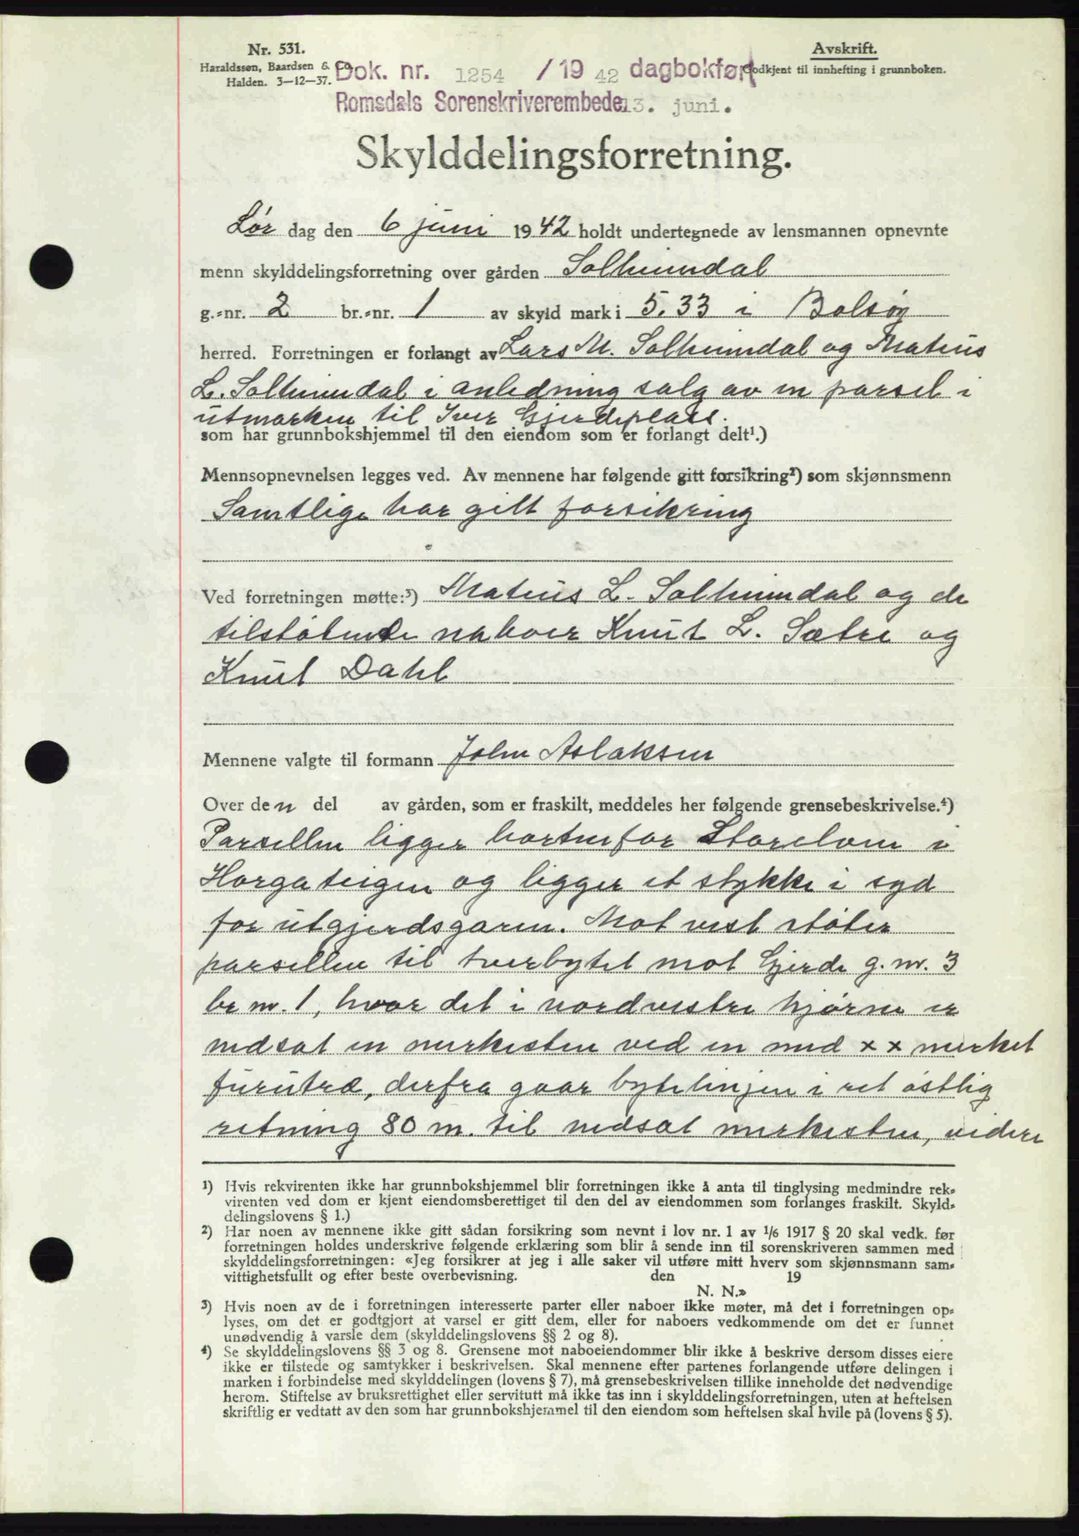 Nr. 531.
Haraldssøn, Baardsen & Co.
Halden. 3—12—37.
Avskrift.
Godkjent til innhefting i grunnboken.
Dok. nr. 1254 / 19 42 dagbokført
Romsdals Sorenskriverembede 13. juni.
Skylddelingsforretning.
Lør dag den 6 juni 1942 holdt undertegnede av lensmannen opnevnte
menn skylddelingsforretning over gården Solheimdal
g.-nr. 2 br.-nr. 1 av skyld mark i 5.33 i Bolsøy
herred. Forretningen er forlangt av Lars M. Solheimdal og Mateus
L. Solheimdal i anledning salg av en parsel i
utmarken til Iver Gjerdeplass.
som har grunnbokshjemmel til den eiendom som er forlangt delt¹.)
Mennsopnevnelsen legges ved. Av mennene har følgende gitt forsikring²) som skjønnsmenn
Samtlige har gitt forsikring
Ved forretningen møtte:³) Mateus L. Solheimdal og de
tilstøtende naboer Knut L. Sætre og
Knut Dahl
Mennene valgte til formann John Aslaksen
Over den del av gården, som er fraskilt, meddeles her følgende grensebeskrivelse.⁴)
Parsellen ligger bortenfor Storelven i
Horgateigen og ligger et stykke i syd
for utgjerdsgaren. Mot vest støter
parsellen til tverbytet mot Gjerde g. nr. 3
br nr. 1, hvor det i nordvestre hjørne er
nedsat en merkesten ved en med x x merket
furutræ, derfra gaar bytelinjen i ret østlig
retning 80 m. til nedsat merkesten, videre
¹) Hvis rekvirenten ikke har grunnbokshjemmel blir forretningen ikke å anta til tinglysing medmindre rek-
virenten ved dom er kjent eiendomsberettiget til den del av eiendommen som forlanges fraskilt. Skyld-
delingslovens § 1.)
²) Har noen av mennene ikke gitt sådan forsikring som nevnt i lov nr. 1 av ¹/₆ 1917 § 20 skal vedk. før
forretningen holdes underskrive følgende erklæring som blir å sende inn til sorenskriveren sammen med
skylddelingsforretningen: «Jeg forsikrer at jeg i alle saker vil utføre mitt hverv som skjønnsmann sam-
vittighetsfullt og efter beste overbevisning. den 19
N. N.»
³) Hvis noen av de i forretningen interesserte parter eller naboer ikke møter, må det i forretningen op-
lyses, om det er godtgjort at varsel er gitt dem, eller for naboers vedkommende om det er funnet
unødvendig å varsle dem (skylddelingslovens §§ 2 og 8).
⁴) Se skylddelingslovens §§ 3 og 8. Grensene mot naboeiendommer blir ikke å beskrive dersom disses eiere
ikke er tilstede og samtykker i beskrivelsen. Skal mennene efter partenes forlangende utføre delingen i
marken i forbindelse med skylddelingen (lovens § 7), må grensebeskrivelsen tillike inneholde det nødvendige
herom. Stiftelse av bruksrettighet eller servitutt må ikke tas inn i skylddelingsforretningen, uten at heftelsen
skriftlig er vedtatt av den som har grunnbokshjemmel til den eiendom som heftelsen skal hvile på (lovens § 5).